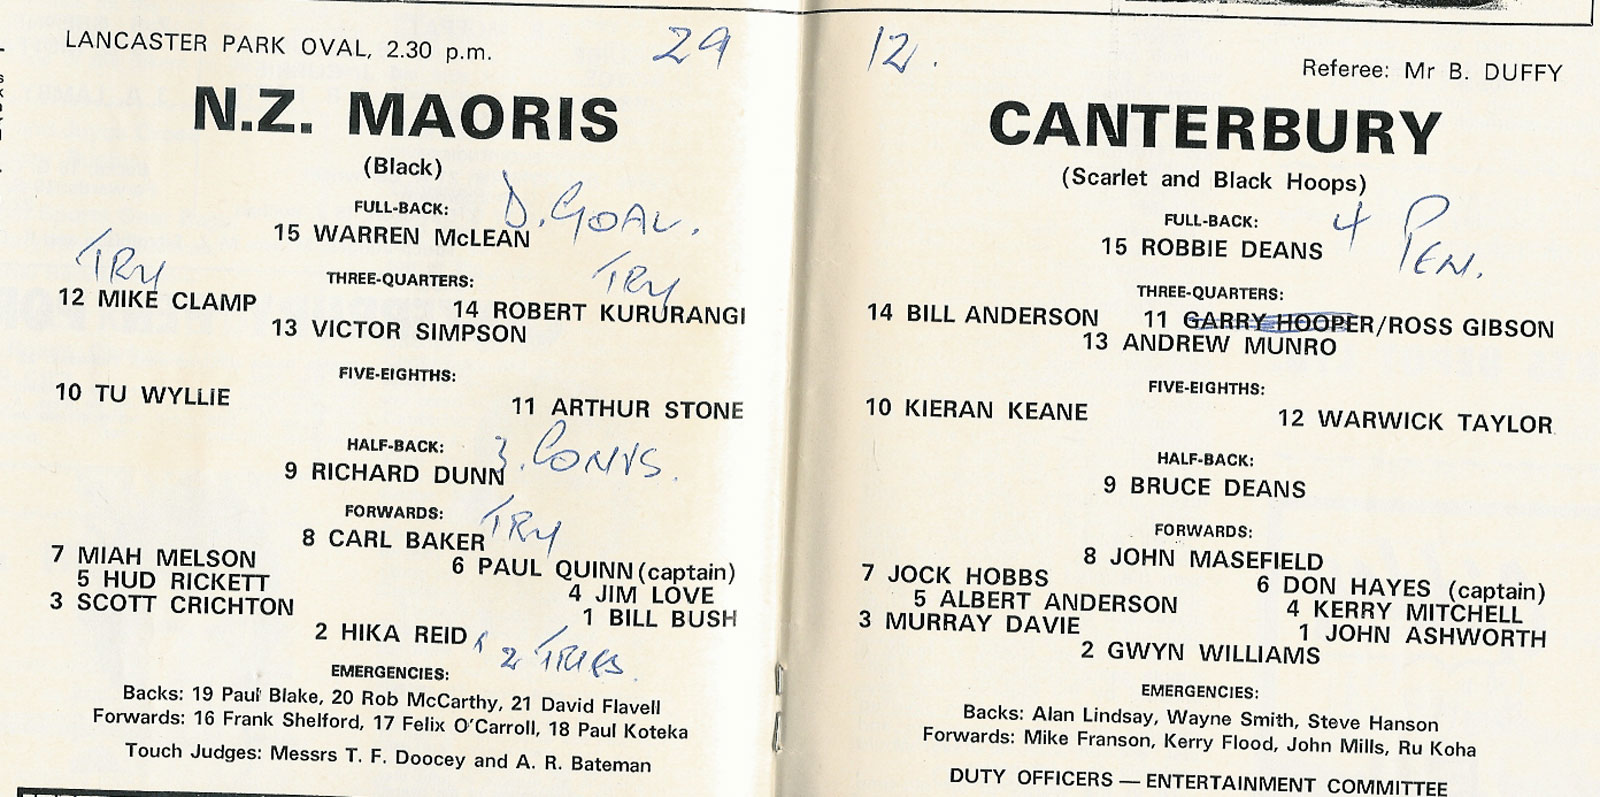 LANCASTER PARK OVAL, 2.30 p.m.
29
N.Z. MAORIS
(Black)
FULL-BACK:
D. GOAL.
15 WARREN McLEAN
TRY
TRY
THREE-QUARTERS:
12 MIKE CLAMP
14 ROBERT KURURANGI
13 VICTOR SIMPSON
FIVE-EIGHTHS:
10 TU WYLLIE
11 ARTHUR STONE
HALF-BACK:
3. CONVS.
9 RICHARD DUNN
FORWARDS:
TRY
8 CARL BAKER
7 MIAH MELSON
6 PAUL QUINN (captain)
5 HUD RICKETT
4 JIM LOVE
3 SCOTT CRICHTON
1 BILL BUSH
2 HIKA REID
2 TRIES.
EMERGENCIES:
Backs: 19 Paul Blake, 20 Rob McCarthy, 21 David Flavell
Forwards: 16 Frank Shelford, 17 Felix O'Carroll, 18 Paul Koteka
Touch Judges: Messrs T. F. Doocey and A. R. Bateman
12.
Referee: Mr B. DUFFY
CANTERBURY
(Scarlet and Black Hoops)
FULL-BACK:
4 PEN.
15 ROBBIE DEANS
THREE-QUARTERS:
14 BILL ANDERSON
11 GARRY HOOPER/ROSS GIBSON
13 ANDREW MUNRO
FIVE-EIGHTHS:
10 KIERAN KEANE
12 WARWICK TAYLOR
HALF-BACK:
9 BRUCE DEANS
FORWARDS:
8 JOHN MASEFIELD
7 JOCK HOBBS
6 DON HAYES (captain)
5 ALBERT ANDERSON
4 KERRY MITCHELL
3 MURRAY DAVIE
1 JOHN ASHWORTH
2 GWYN WILLIAMS
EMERGENCIES:
Backs: Alan Lindsay, Wayne Smith, Steve Hanson
Forwards: Mike Franson, Kerry Flood, John Mills, Ru Koha
DUTY OFFICERS — ENTERTAINMENT COMMITTEE